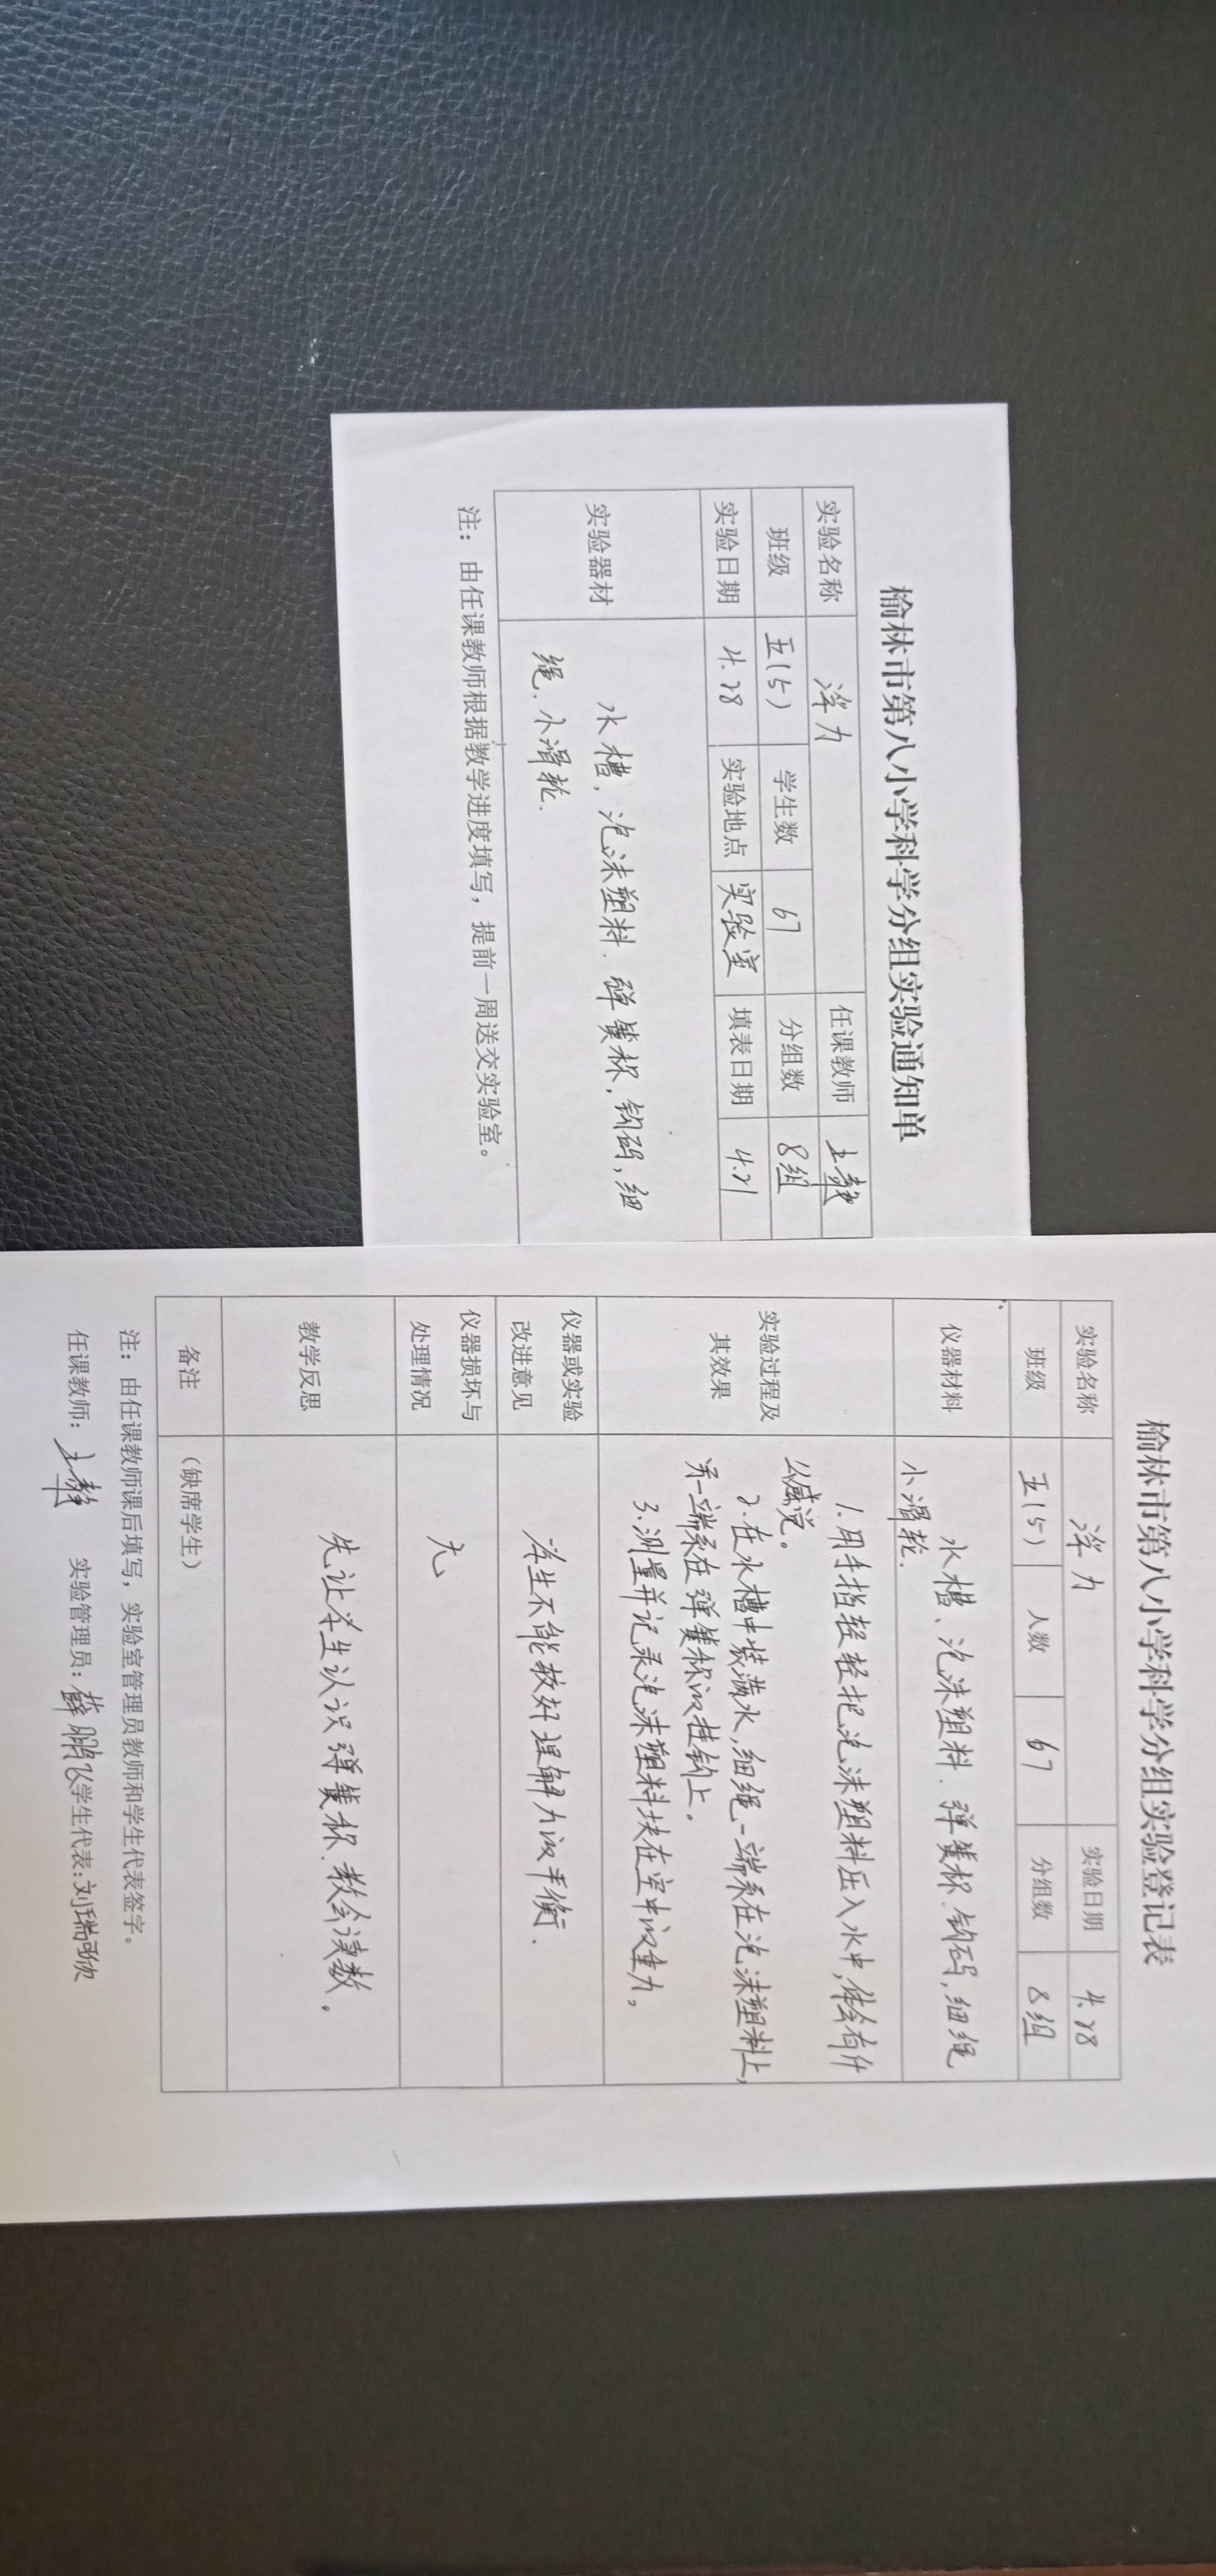 榆林市第八小学科学分组实验通知单
实验名称 浮力 任课教师
班级 五(5) 学生数 67 分组数 8组
实验日期 4.28 实验地点 实验室 填表日期 4.21
实验器材 水槽、泡沫塑料.弹簧称,钩码,细
绳.小滑轮.
注：由任课教师根据教学进度填写，提前一周送交实验室。
榆林市第八小学科学分组实验登记表
实验名称 浮力 实验日期 4.28
班级 五(5) 人数 67 分组数 8组
仪器材料 水槽、泡沫塑料.弹簧称.钩码,细绳
小滑轮.
实验过程及
其效果
1.用手指轻轻把泡沫塑料压入水中,体会有什
么感觉。
2.在水槽中装满水,细绳一端系在泡沫塑料上,
另一端系在弹簧称的挂钩上。
3.测量并记录泡沫塑料块在空中的重力,
仪器或实验
改进意见
学生不能较好理解力的平衡.
仪器损坏与
处理情况
无
教学反思 先让学生认识弹簧称.教会读数。
备注 （缺席学生）
注：由任课教师课后填写，实验室管理员教师和学生代表签字。
任课教师： 实验管理员：薛鹏飞 学生代表：刘瑞欣